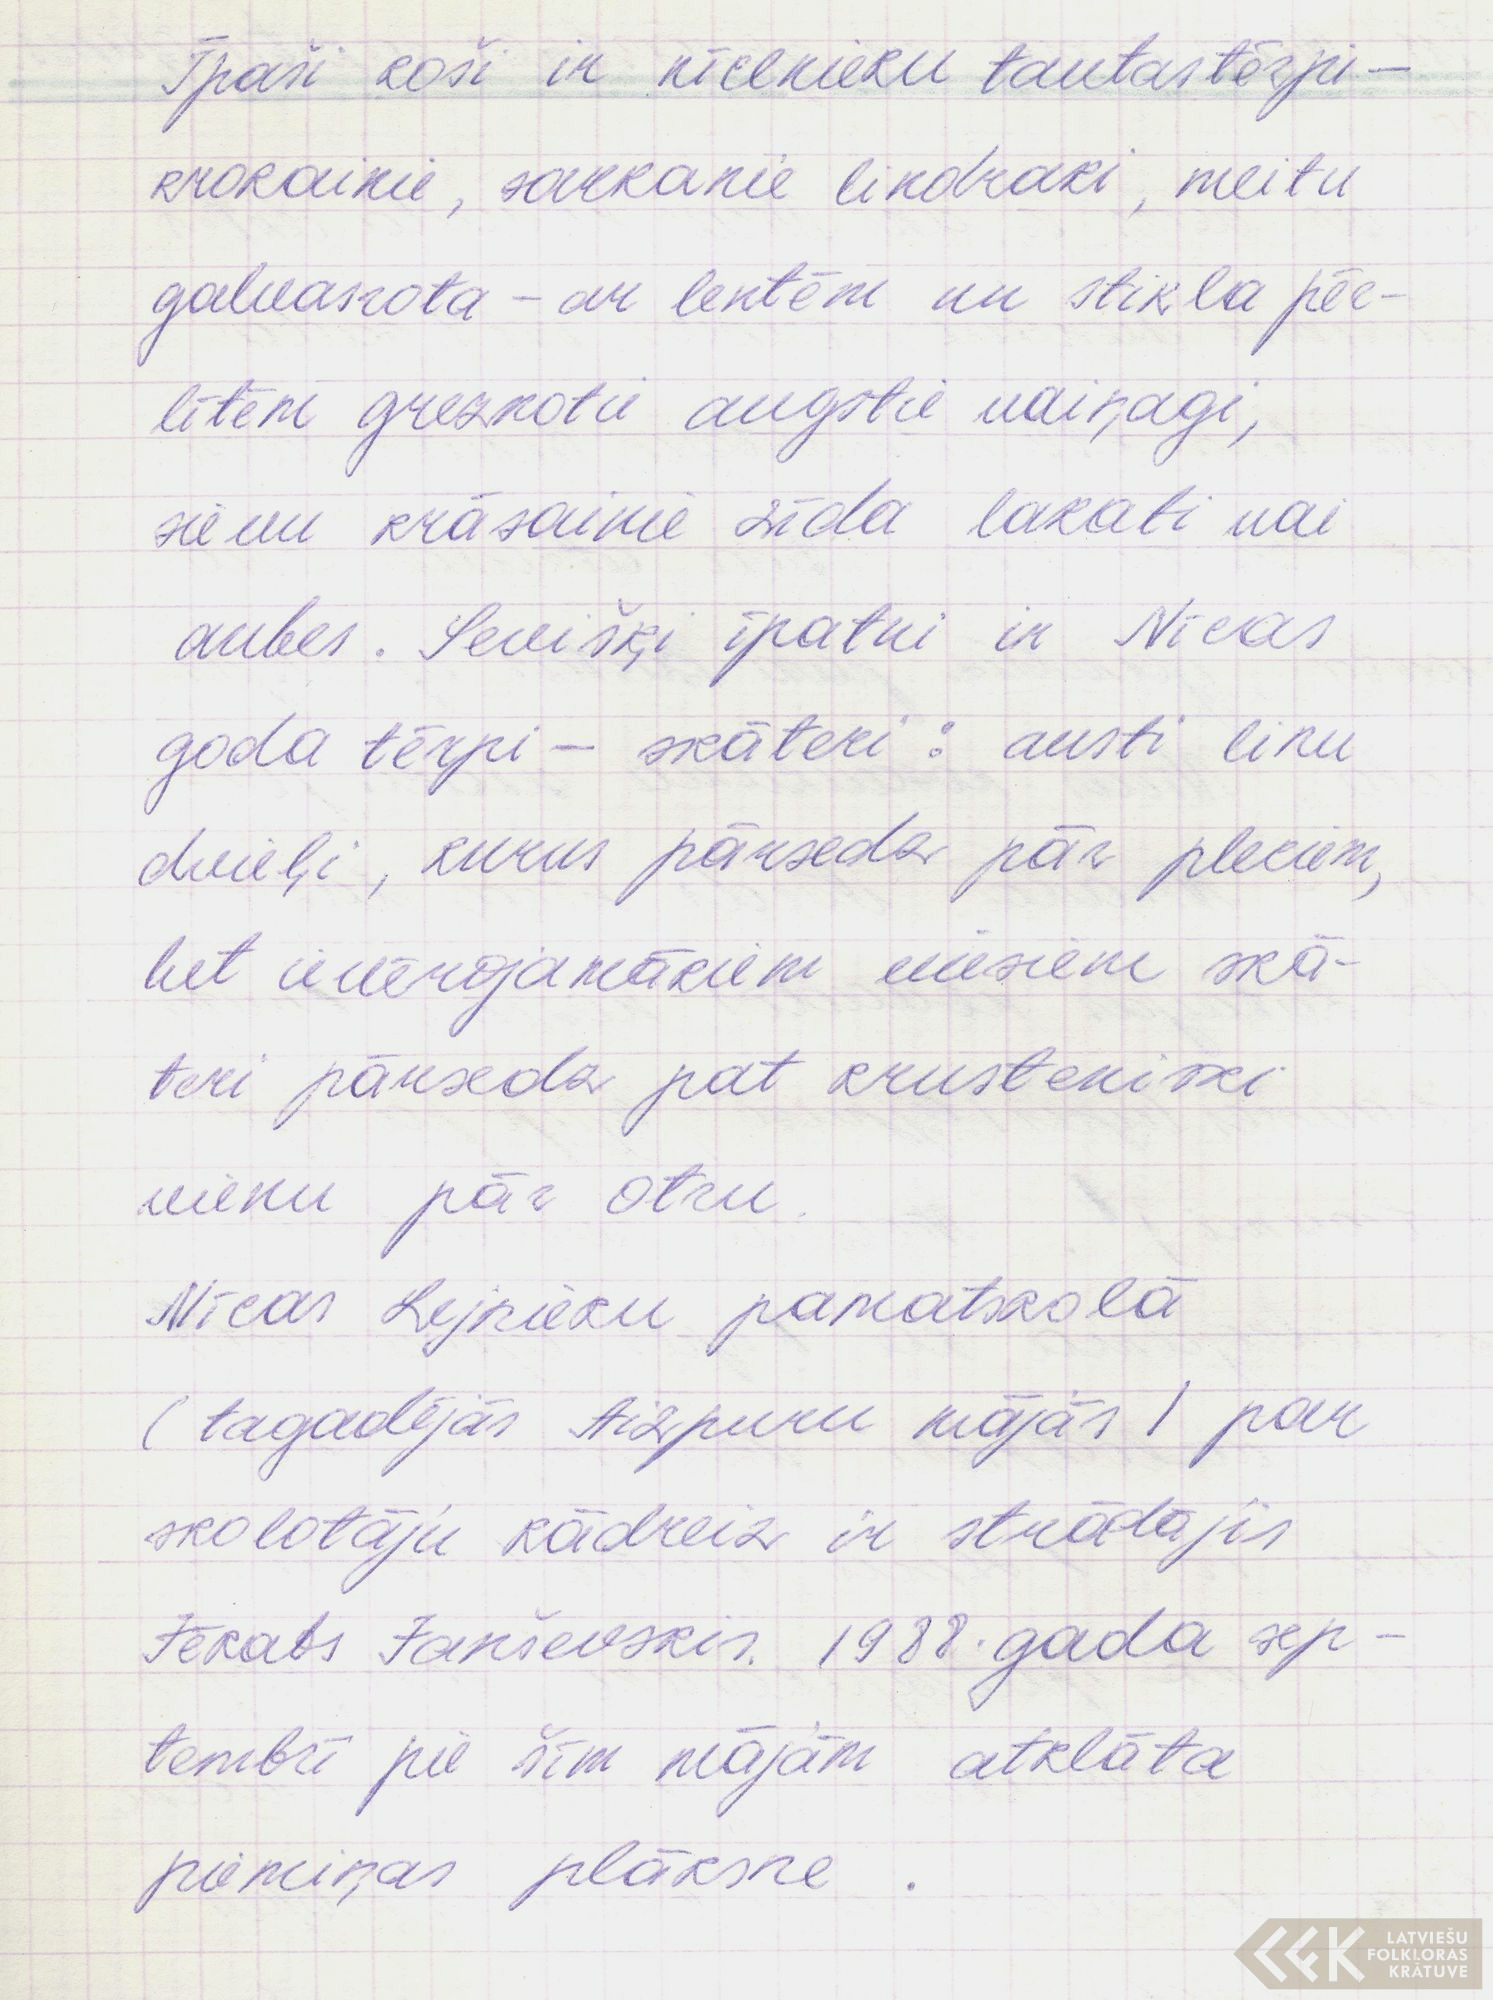 Īpaši koši ir nīcenieku tautastērpi –
krokainie, sarkanie lindraki, meitu
galvasrota – ar lentēm un stikla pēr-
lītēm greznotie augstie vaiņagi,
sievu krāsainie zīda lakati vai
aubes. Sevišķi īpatni ir Nīcas
goda tērpi – skāteri: austi linu
dvieļi, kurus pārsedz pār pleciem,
bet ievērojamākiem viesiem skā-
teri pārsedz pat krusteniski
vienu pār otru.
Nīcas Lejnieku pamatskolā
(tagadējās Aizpuru mājās) par
skolotāju kādreiz ir strādājis
Jēkabs Janševskis. 1988. gada sep-
tembrī pie šīm mājām atklāta
piemiņas plāksne.
LATVIEŠU
FOLKLORAS
KRĀTUVE